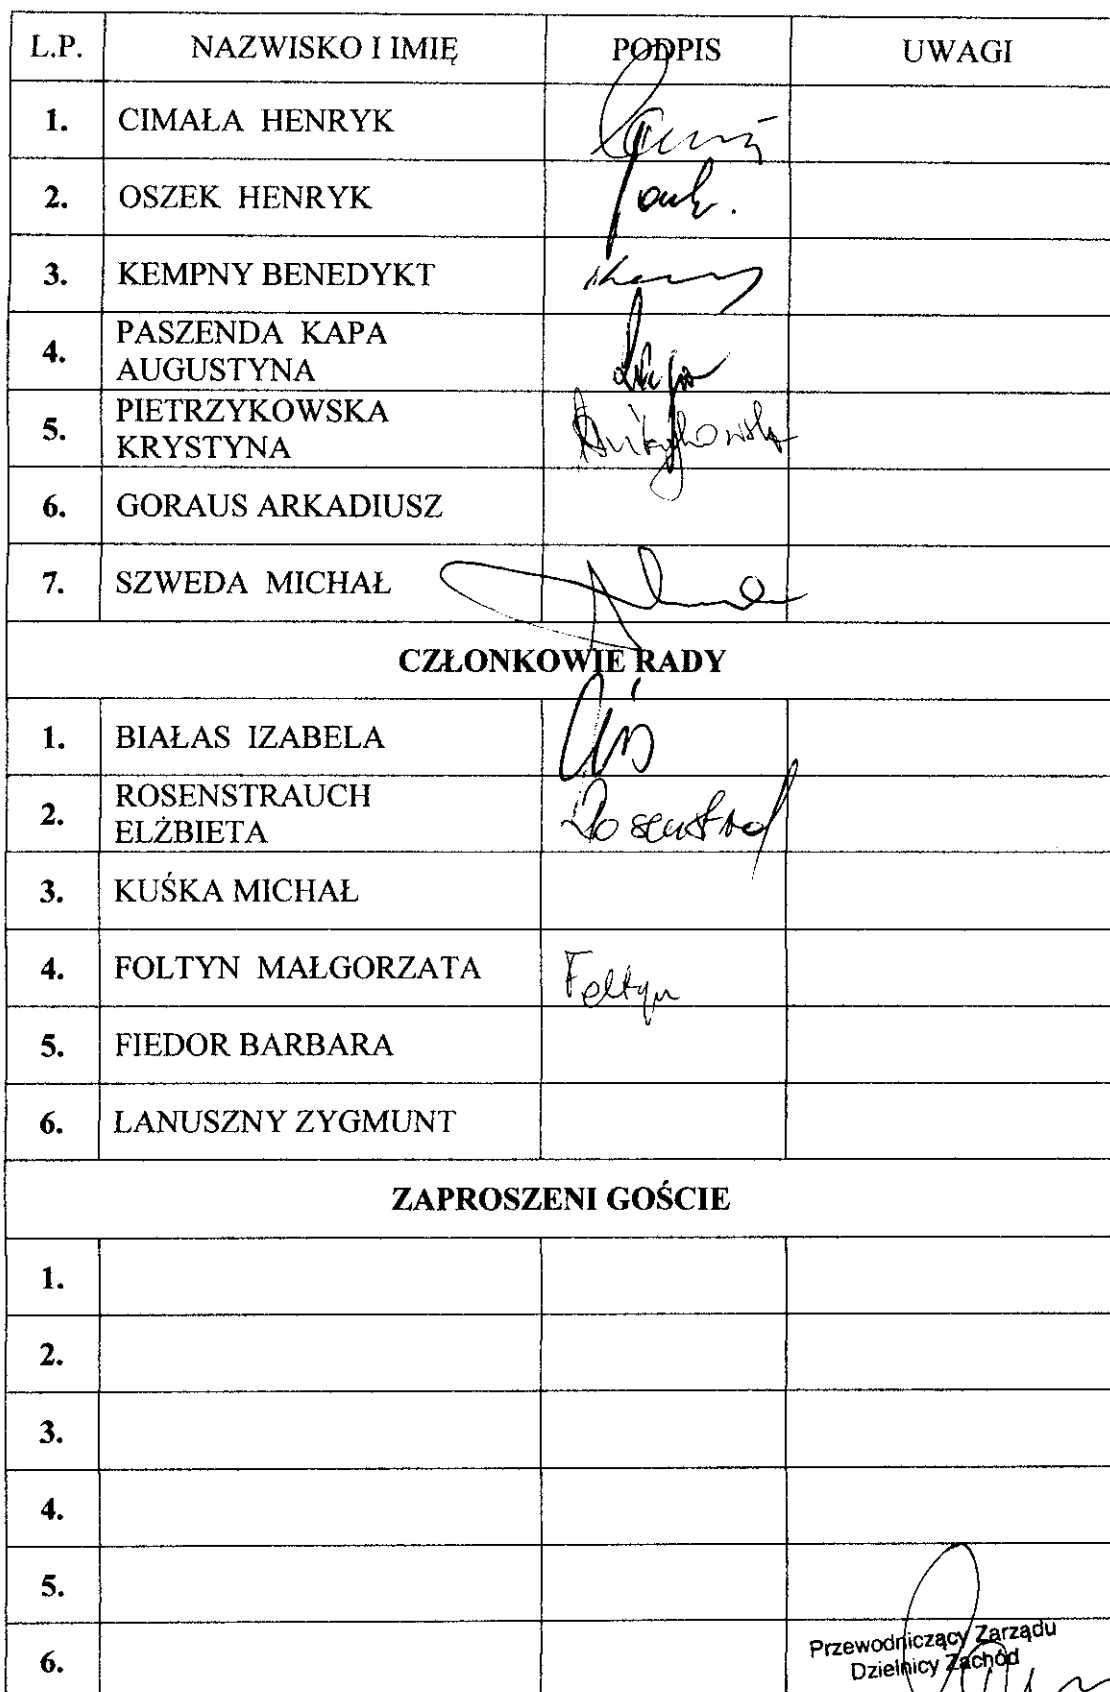 L.P. NAZWISKO I IMIĘ PODPIS UWAGI
1. CIMAŁA HENRYK
2. OSZEK HENRYK
3. KEMPNY BENEDYKT
4. PASZENDA KAPA
AUGUSTYNA
5. PIETRZYKOWSKA
KRYSTYNA
6. GORAUS ARKADIUSZ
7. SZWEDA MICHAŁ
CZŁONKOWIE RADY
1. BIAŁAS IZABELA
2. ROSENSTRAUCH
ELŻBIETA
3. KUŚKA MICHAŁ
4. FOLTYN MAŁGORZATA Foltyn
5. FIEDOR BARBARA
6. LANUSZNY ZYGMUNT
ZAPROSZENI GOŚCIE
1.
2.
3.
4.
5.
6.
Przewodniczący Zarządu
Dzielnicy Zachód